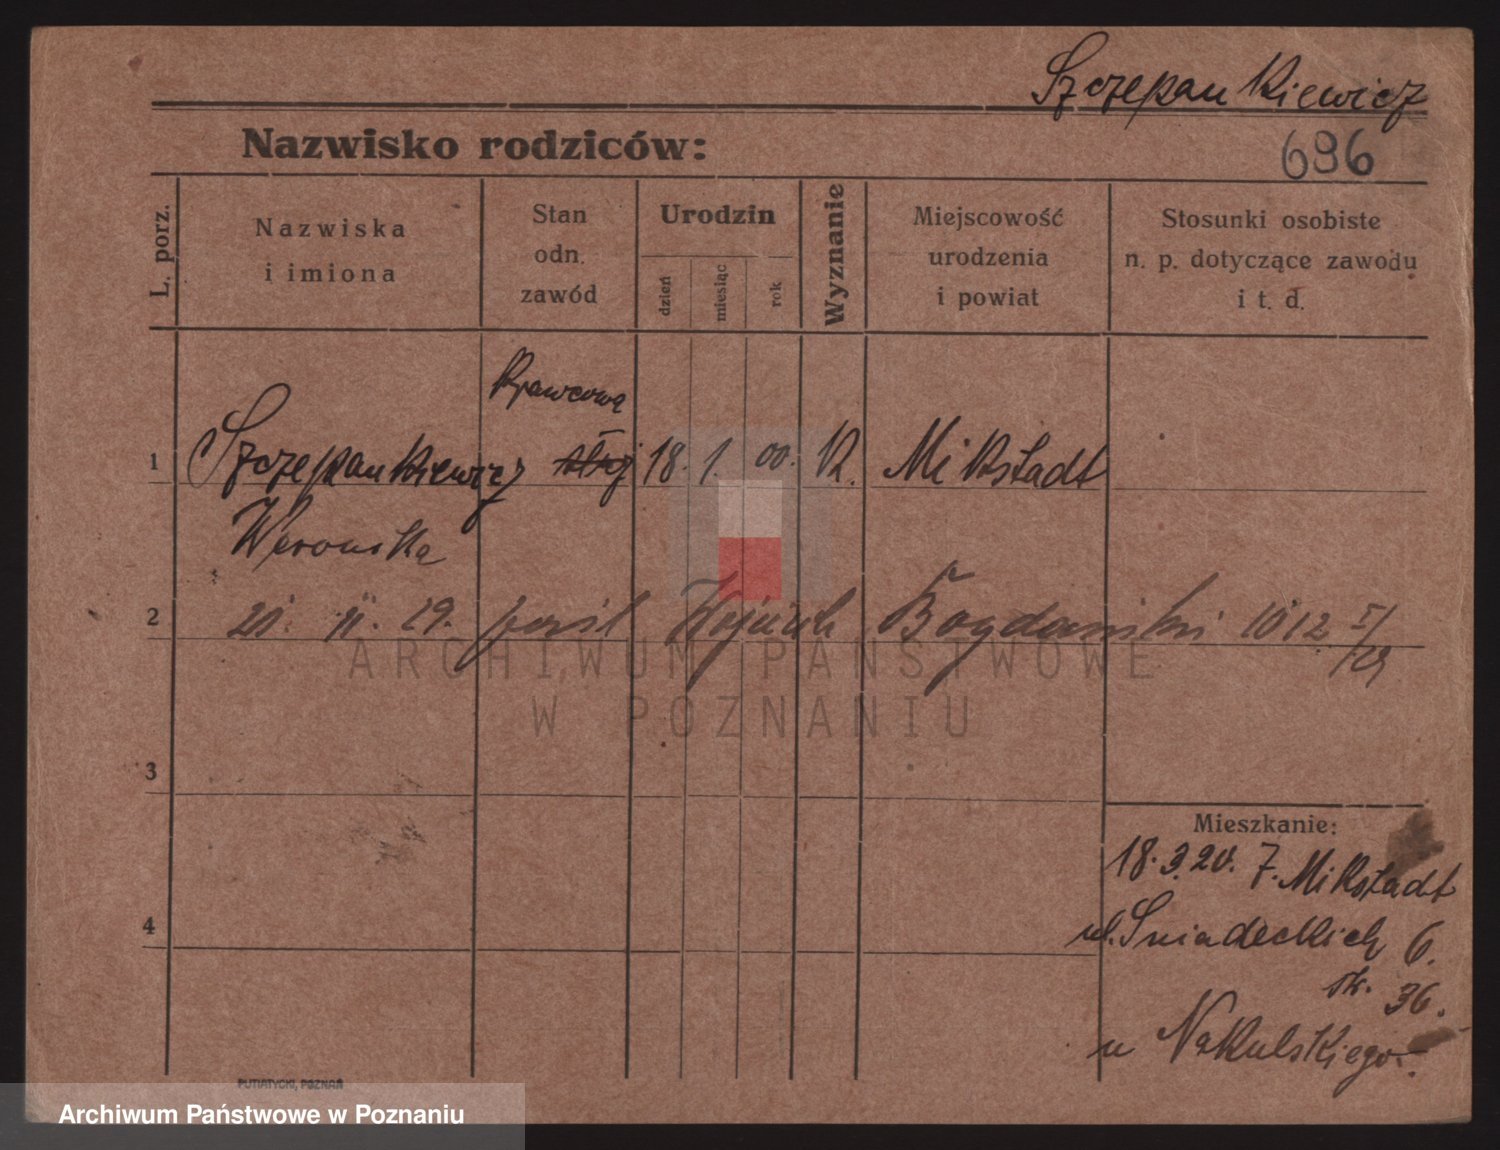 Szczepankiewicz
Nazwisko rodziców:
696
L. porz.
Nazwiska
i imiona
Stan
odn.
zawód
Urodzin
dzień
miesiąc
rok
Wyznanie
Miejscowość
urodzenia
i powiat
Stosunki osobiste
n. p. dotyczące zawodu
i t. d.
Krawcowa
1 Szczepankiewicz 18. 1. 00. K. Mikstadt
Weronika
2 11. 29. Wojciech Bogdański 1012 I/
/29
ARCHIWUM PAŃSTWOWE
W POZNANIU
3
Mieszkanie:
18. 3. 20. z. Mikstadt
4
ul. Sniadeckich 6.
36.
u Nakulskiego.
PUTIATYCKI, POZNAŃ
Archiwum Państwowe w Poznaniu